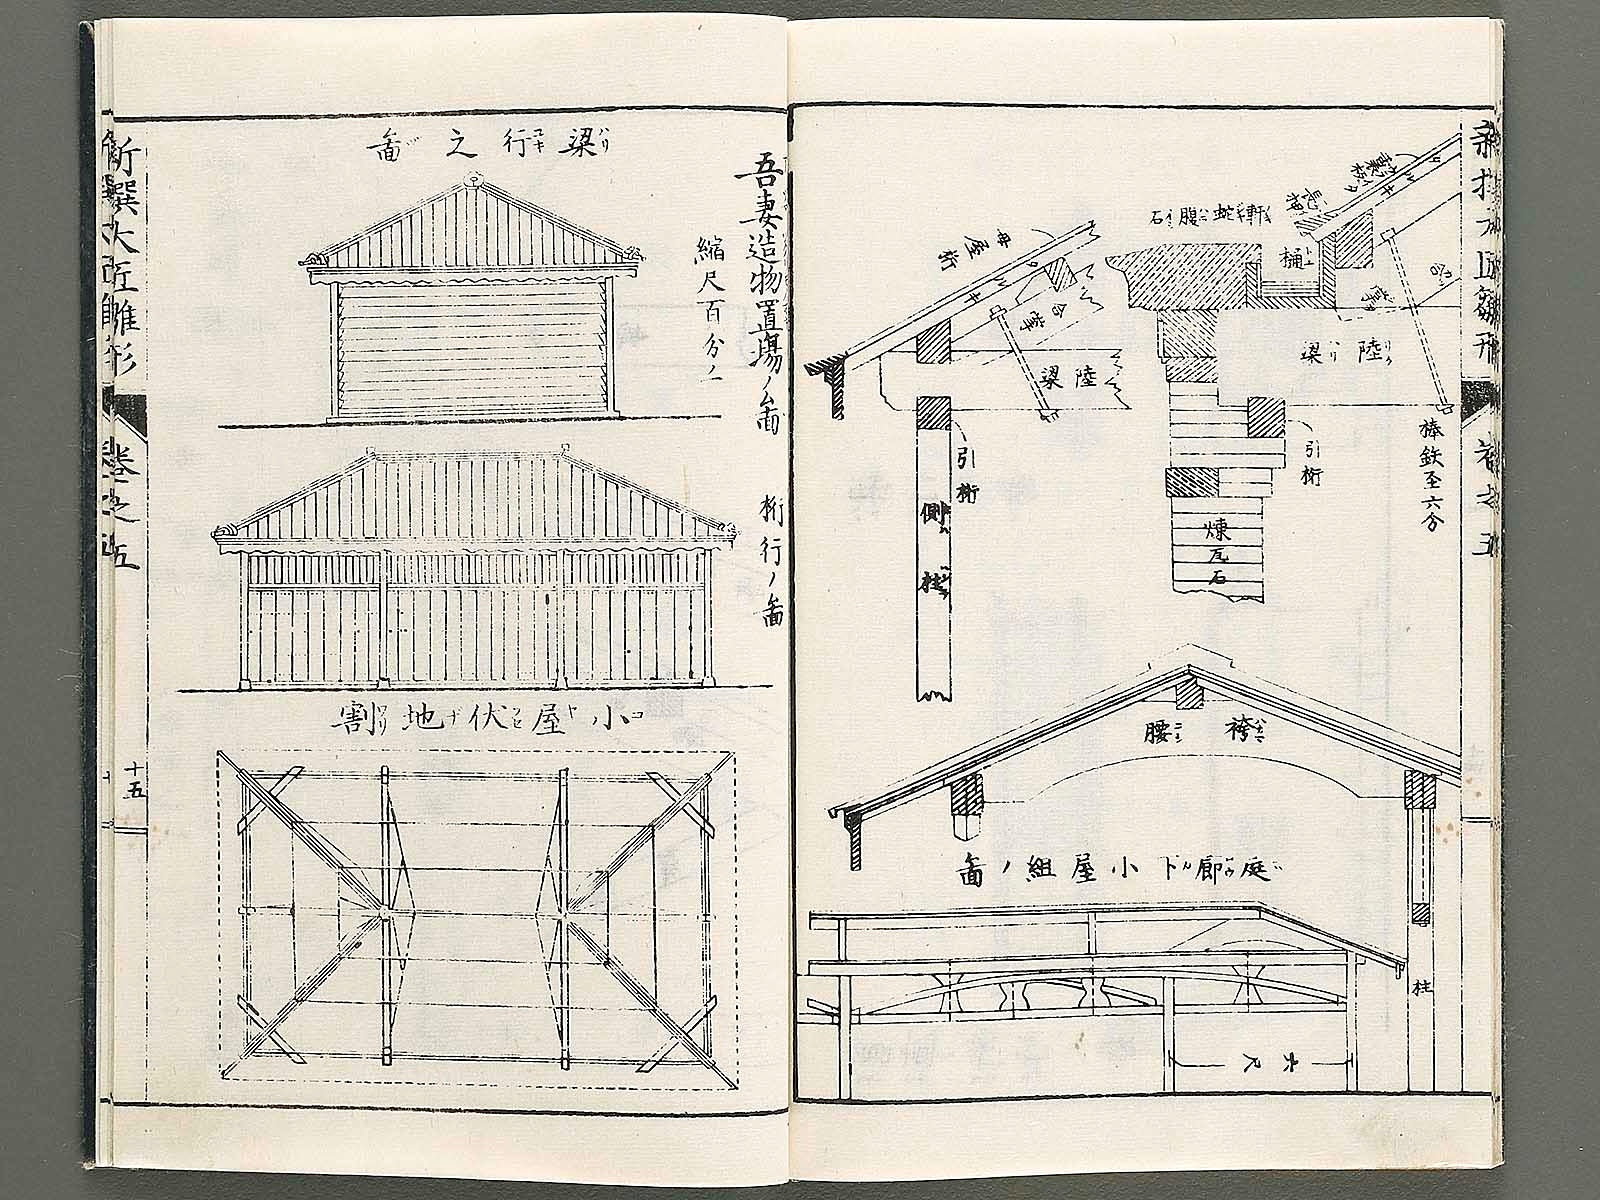 軒蛇腹石
樋
母屋桁
合掌
合掌
陸梁
陸梁
引桁
引桁
棒鉄至六分
側柱
煉瓦石
袴腰
庭廊下小屋組ノ図
柱
六尺
吾妻造物置場ノ図
縮尺百分ノ一
梁行之図
桁行ノ図
小屋伏地割
新撰大匠雛形
巻之五
十五